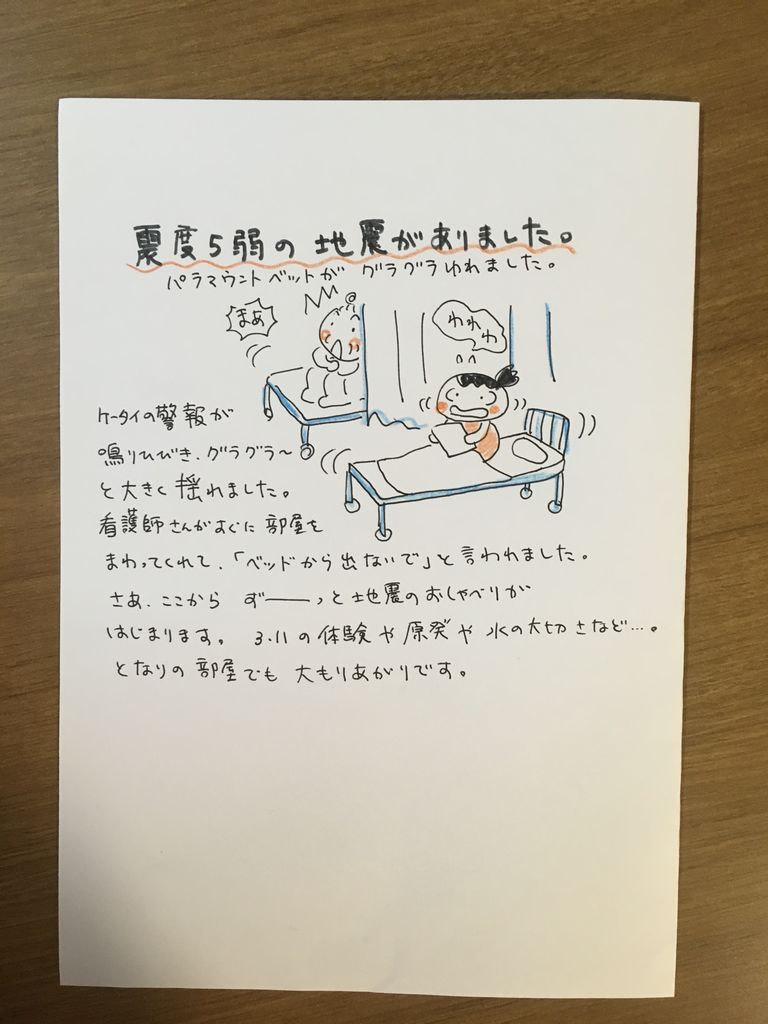 震度5弱の地震がありました。
パラマウントベットがグラグラゆれました。
まあ
わわわ
ケータイの警報が
鳴りひびき、グラグラ〜
と大きく揺れました。
看護師さんがすぐに部屋を
まわってくれて、「ベッドから出ないで」と言われました。
さあ、ここから ず――っと地震のおしゃべりが
はじまります。 3.11の体験や原発や水の大切さなど…。
となりの部屋でも大もりあがりです。